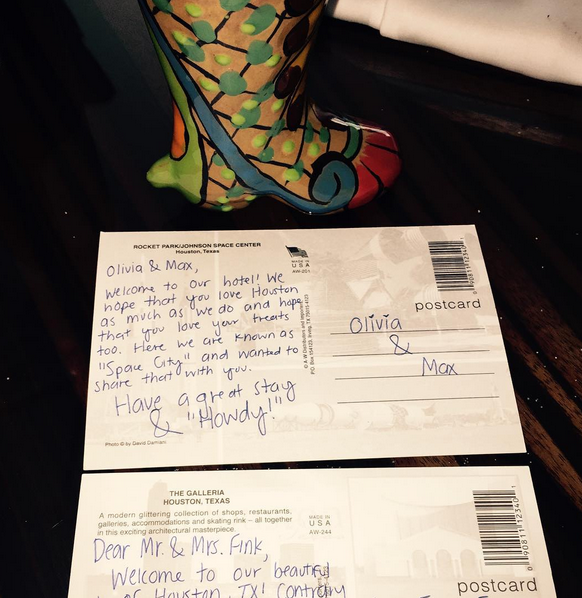 ROCKET PARK/JOHNSON SPACE CENTER
Houston, Texas
Olivia & Max,
Welcome to our hotel! We
hope that you love Houston
as much as we do and hope
that you love your treats
too. Here we are known as
"Space City" and wanted to
share that with you.
Have a great stay
& "Howdy!"
Photo © by David Damian
MADE IN
USA
AW-201
postcard
Olivia
&
Max
THE GALLERIA
HOUSTON, TEXAS
A modern glittering collection of shops, restaurants,
galleries, accommodations and skating rink – all together
in this exciting architectural masterpiece.
MADE IN
USA
AW-244
Dear Mr. & Mrs. Fink,
Welcome to our beautiful
of Houston, TX! Contrary
postcard